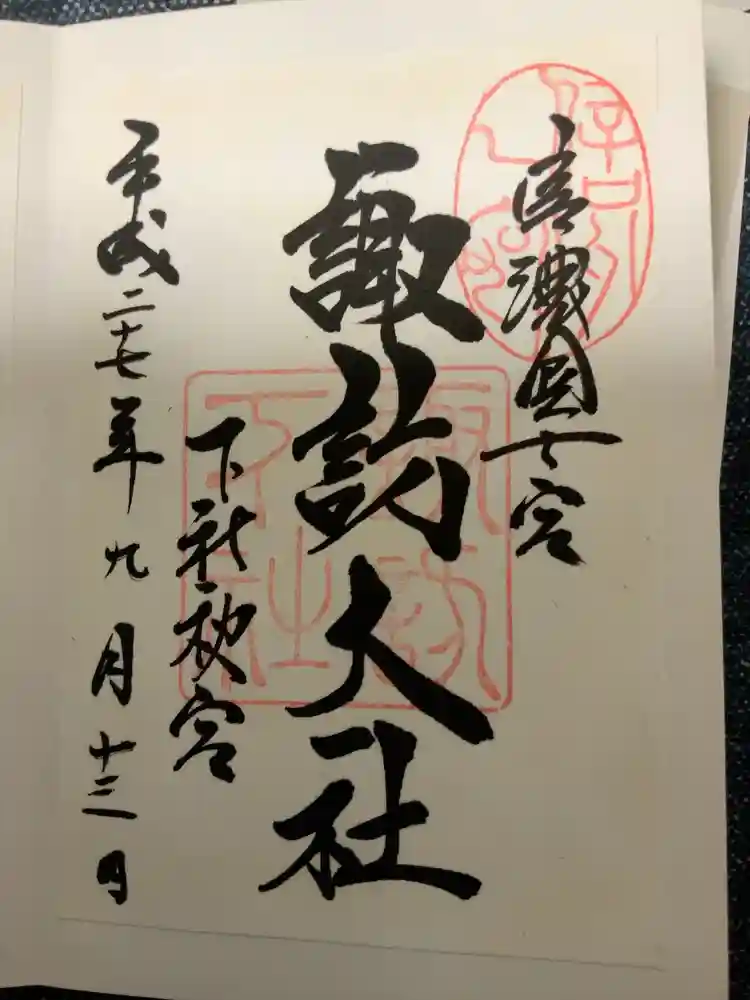 信濃國一宮
諏訪大社
下社秋宮
平成二十七年九月十三日